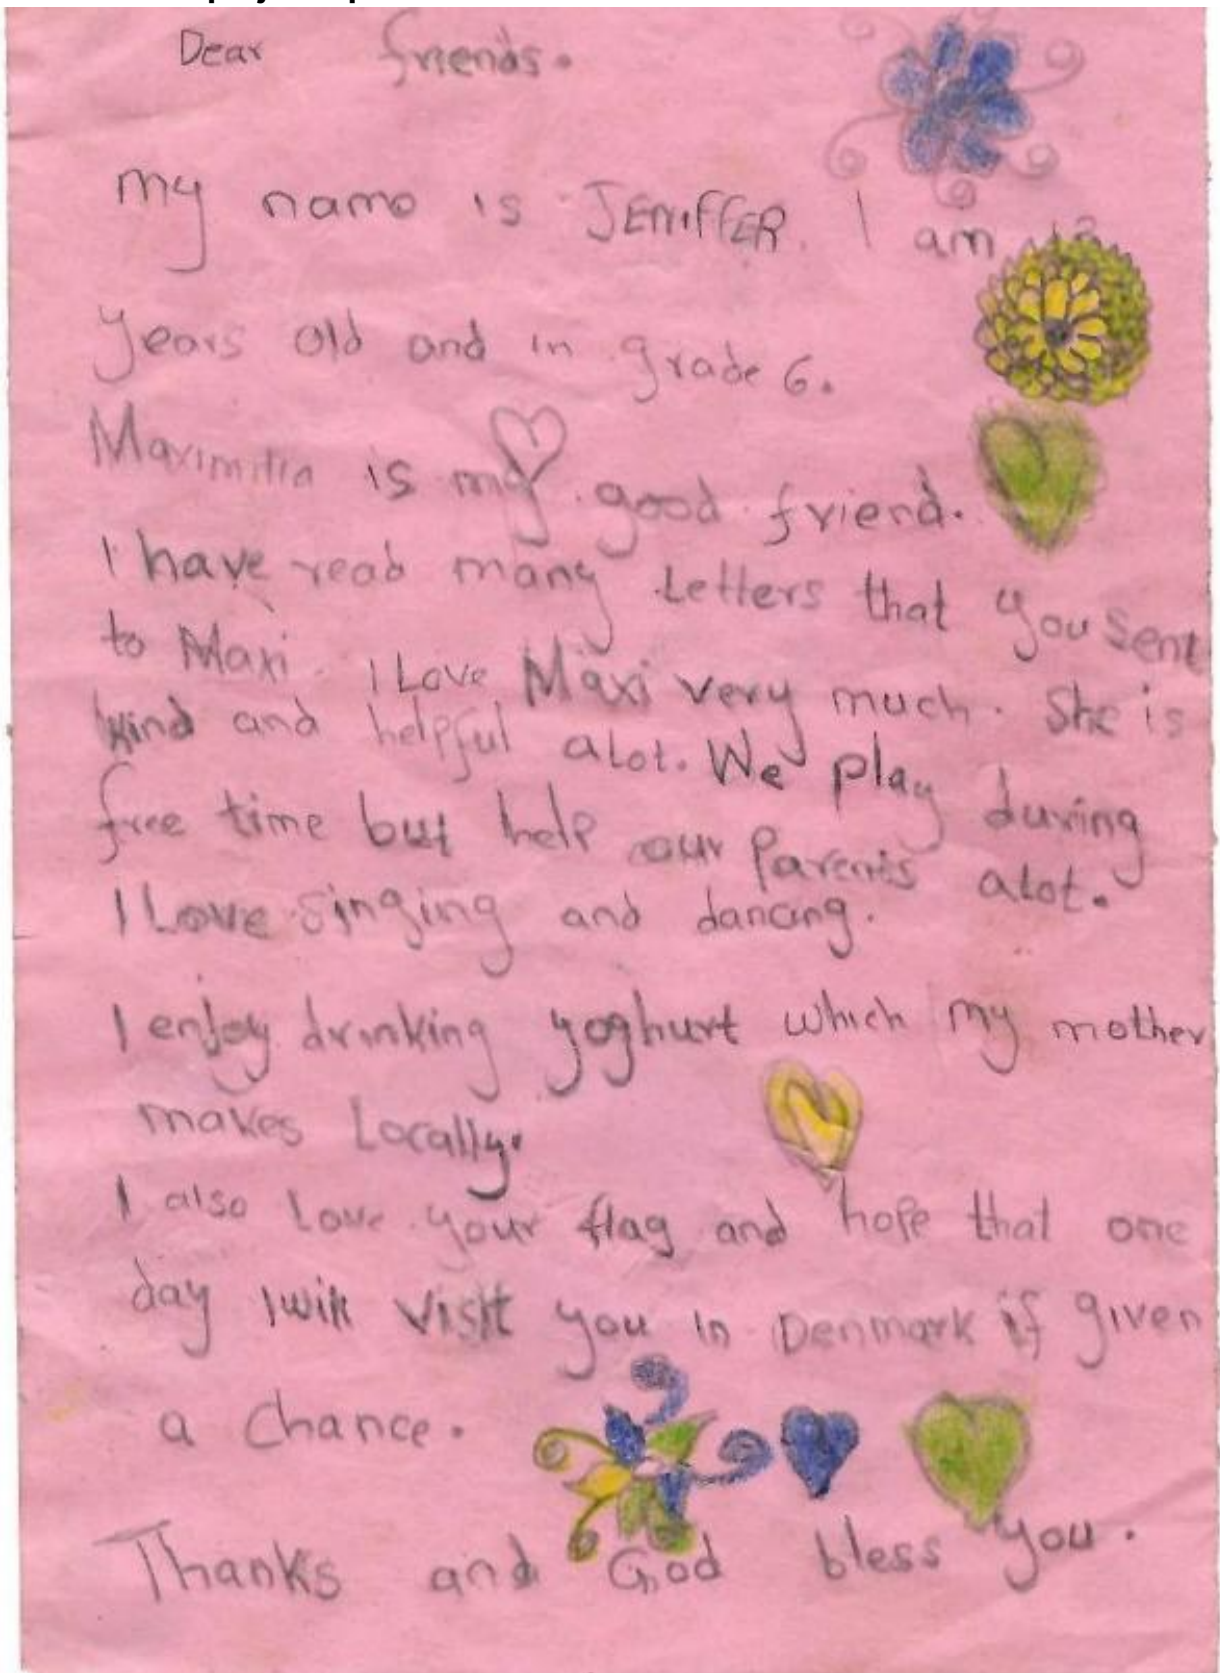 Dear friends.
my name is JENIFFER. I am
years old and in grade 6.
Maximilia is my good friend.
I have read many Letters that you sent
to Maxi. I Love Maxi very much. She is
kind and helpful alot. We play during
free time but help our Parents alot.
I Love singing and dancing.
I enjoy drinking yoghurt which my mother
makes Locally.
I also Love your flag and hope that one
day I will visit you in Denmark if given
a chance.
Thanks and God bless you.